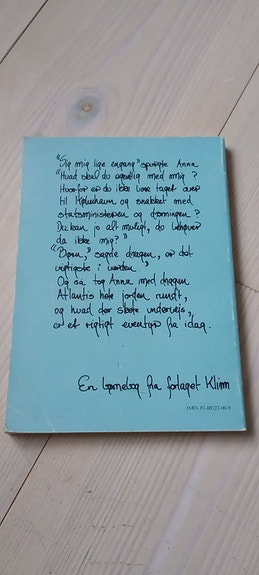 "Sig mig lige engang" spurgte Anna
"Hvad skal du egentlig med mig?
Hvorfor er du ikke bare taget over
til København og snakket med
statsministeren og dronningen?
Du kan jo alt muligt, du behøver
da ikke mig?"
"Børn," sagde dragen, er det
vigtigste i verden"
Og så tog Anna med dragen
Atlantis hele jorden rundt,
og hvad der skete undervejs,
er et rigtigt eventyr fra idag.
En børnebog fra forlaget Klim